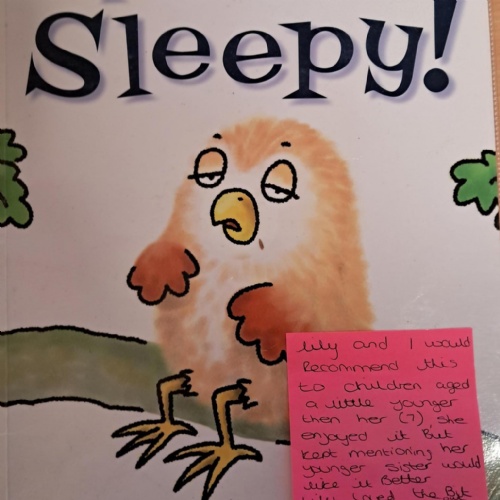 Sleepy!
Lily and I would
Recommend this
to children aged
a little younger
then her (7), she
enjoyed it But
kept mentioning her
younger sister would
like it Better
Lily loved the Bit